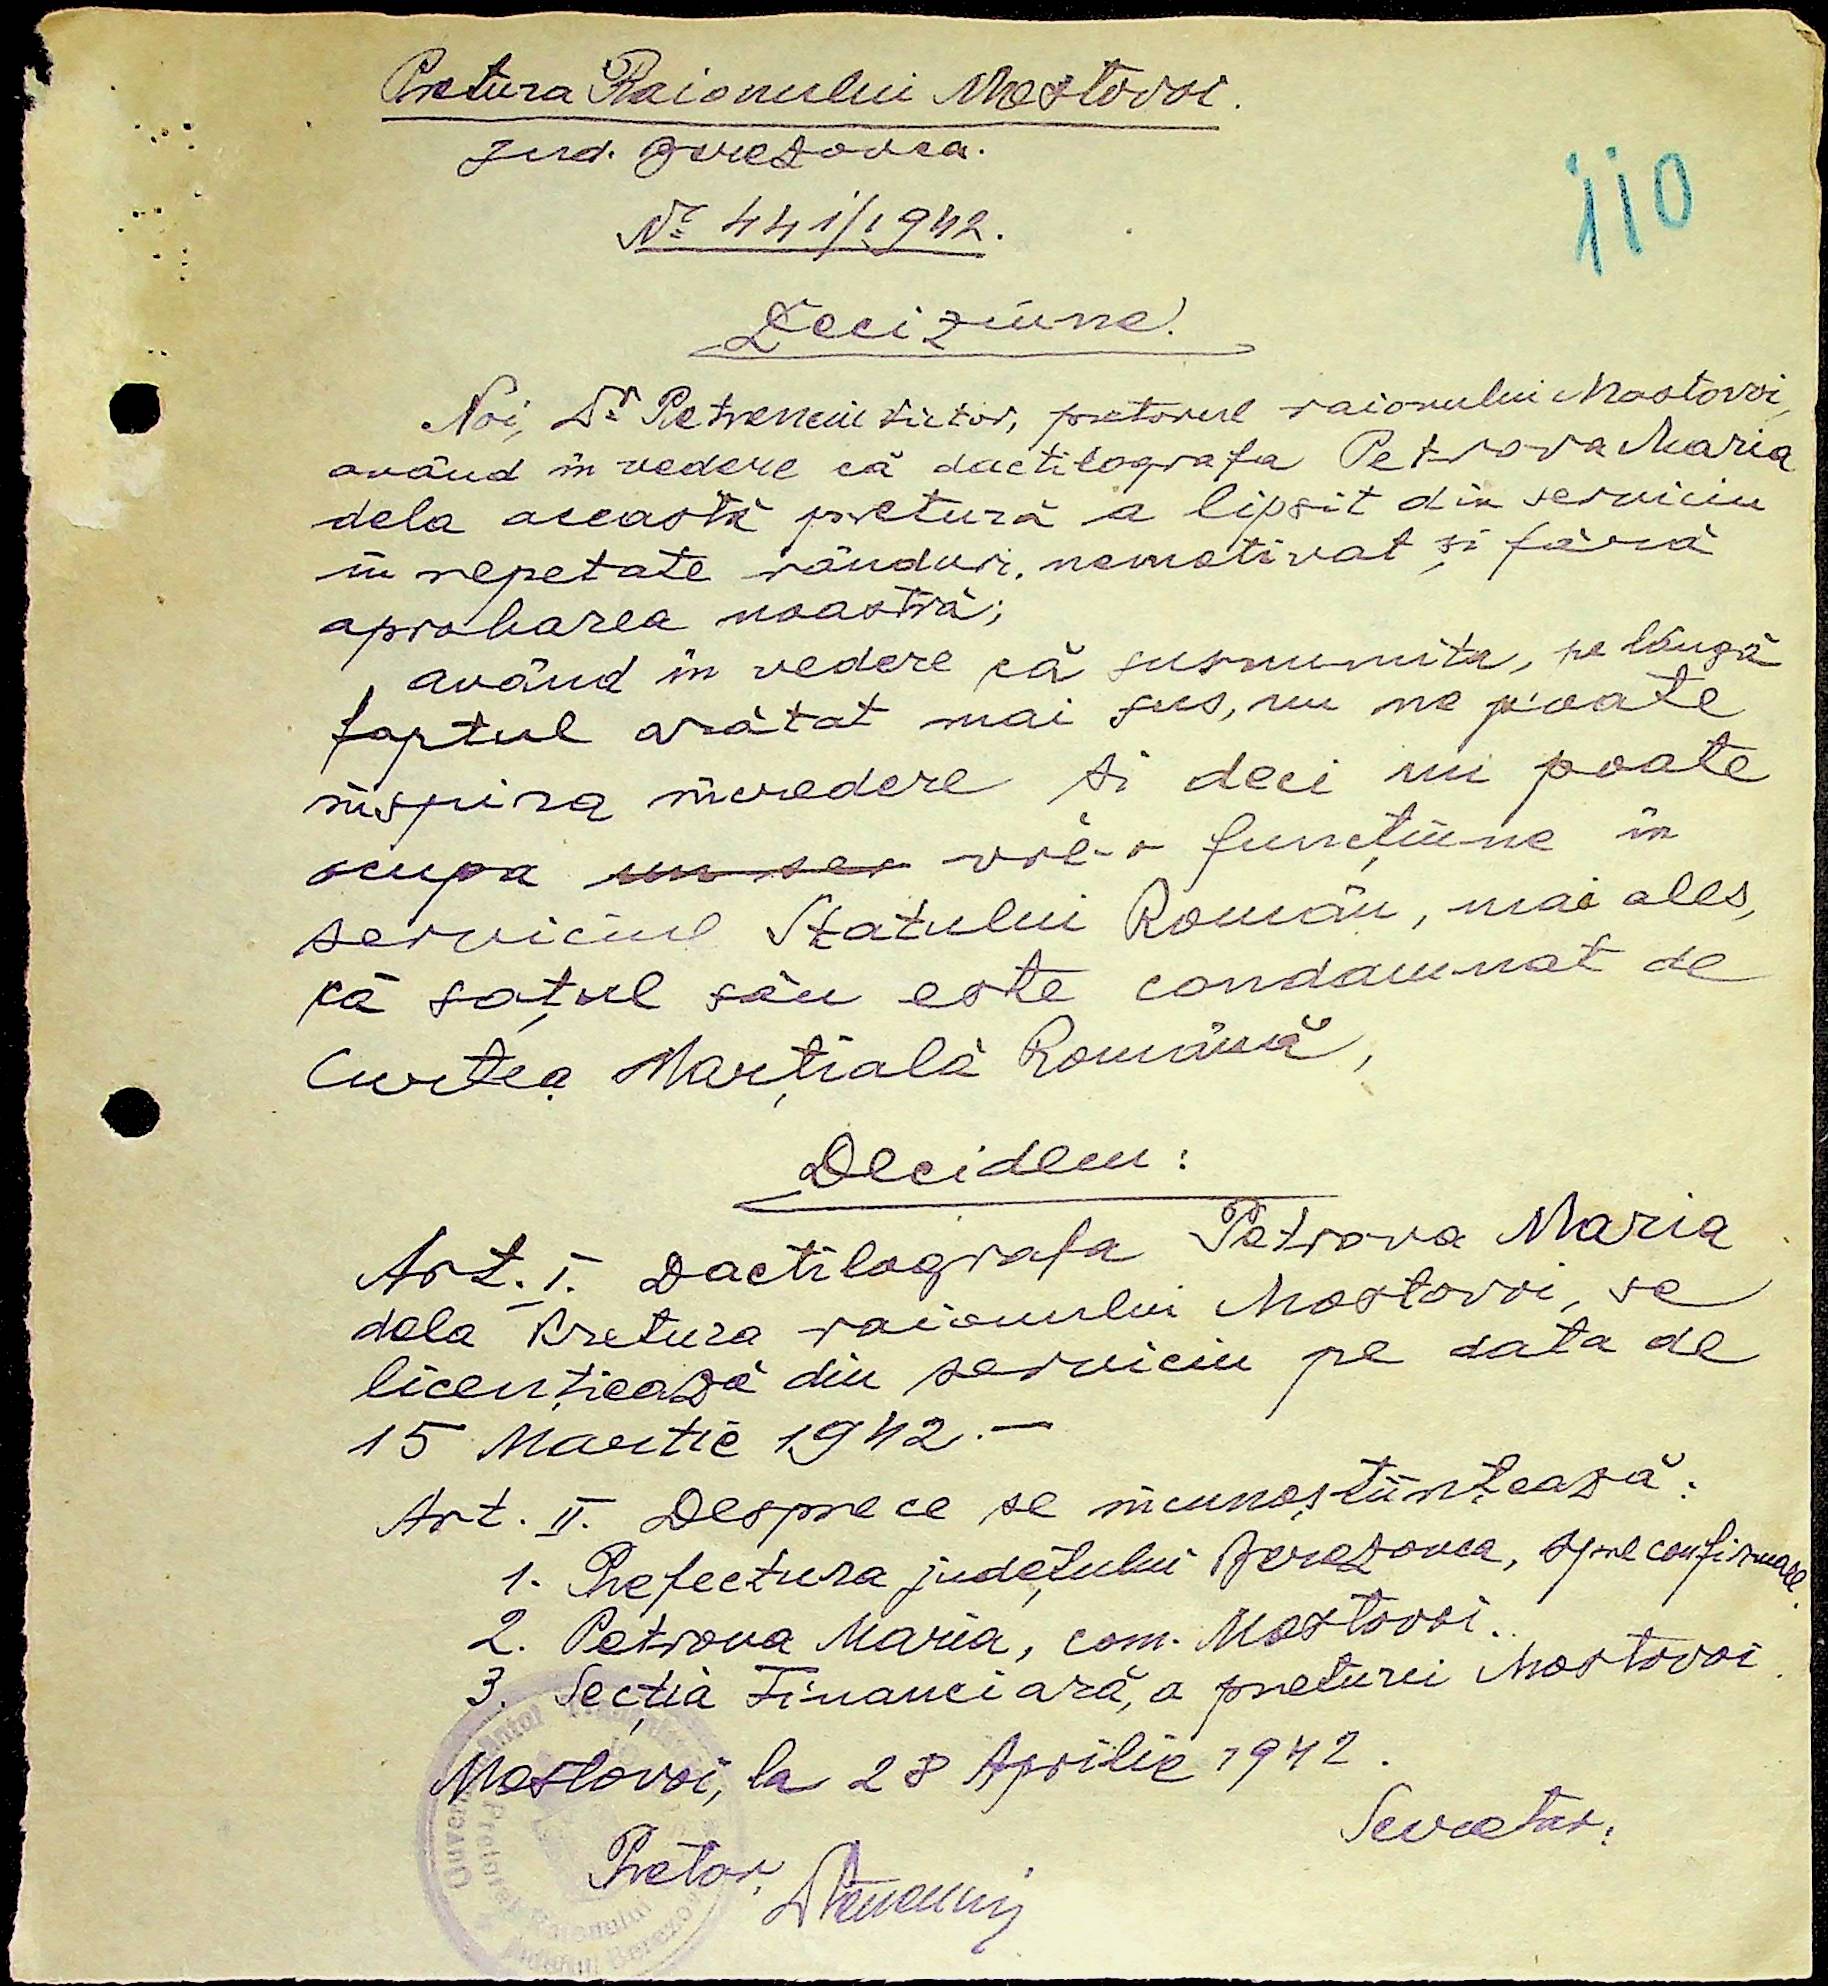 Pretura Raionului Mostovoi.
Jud. Berezovca.
Nr 441/1942.
110
Deciziune.
Noi, Dr Petrenciu Victor, pretorul raionului Mostovoi,
având în vedere că dactilografa Petrova Maria
dela această pretură a lipsit din serviciu
în repetate rânduri, nemotivat și fără
aprobarea noastră;
având în vedere că susnumita, pe lângă
faptul arătat mai sus, nu ne poate
inspira încredere și deci nu poate
ocupa un ser vre-o funcțiune în
serviciul Statului Român, mai ales,
că soțul său este condamnat de
Curtea Marțială Română,
Decidem:
Art. I. Dactilografa Petrova Maria
dela Pretura raionului Mostovoi, se
licențiează din serviciu pe data de
15 Martie 1942.—
Art. II. Despre ce se încunoștiințează:
1. Prefectura județului Berezovca, spre confirmare.
2. Petrova Maria, com. Mostovoi.
3. Secția Financiară, a preturii Mostovoi.
Mostovoi, la 28 Aprilie 1942.
Secretar,
Pretor,
Pretor Raionului
Județul Berezo